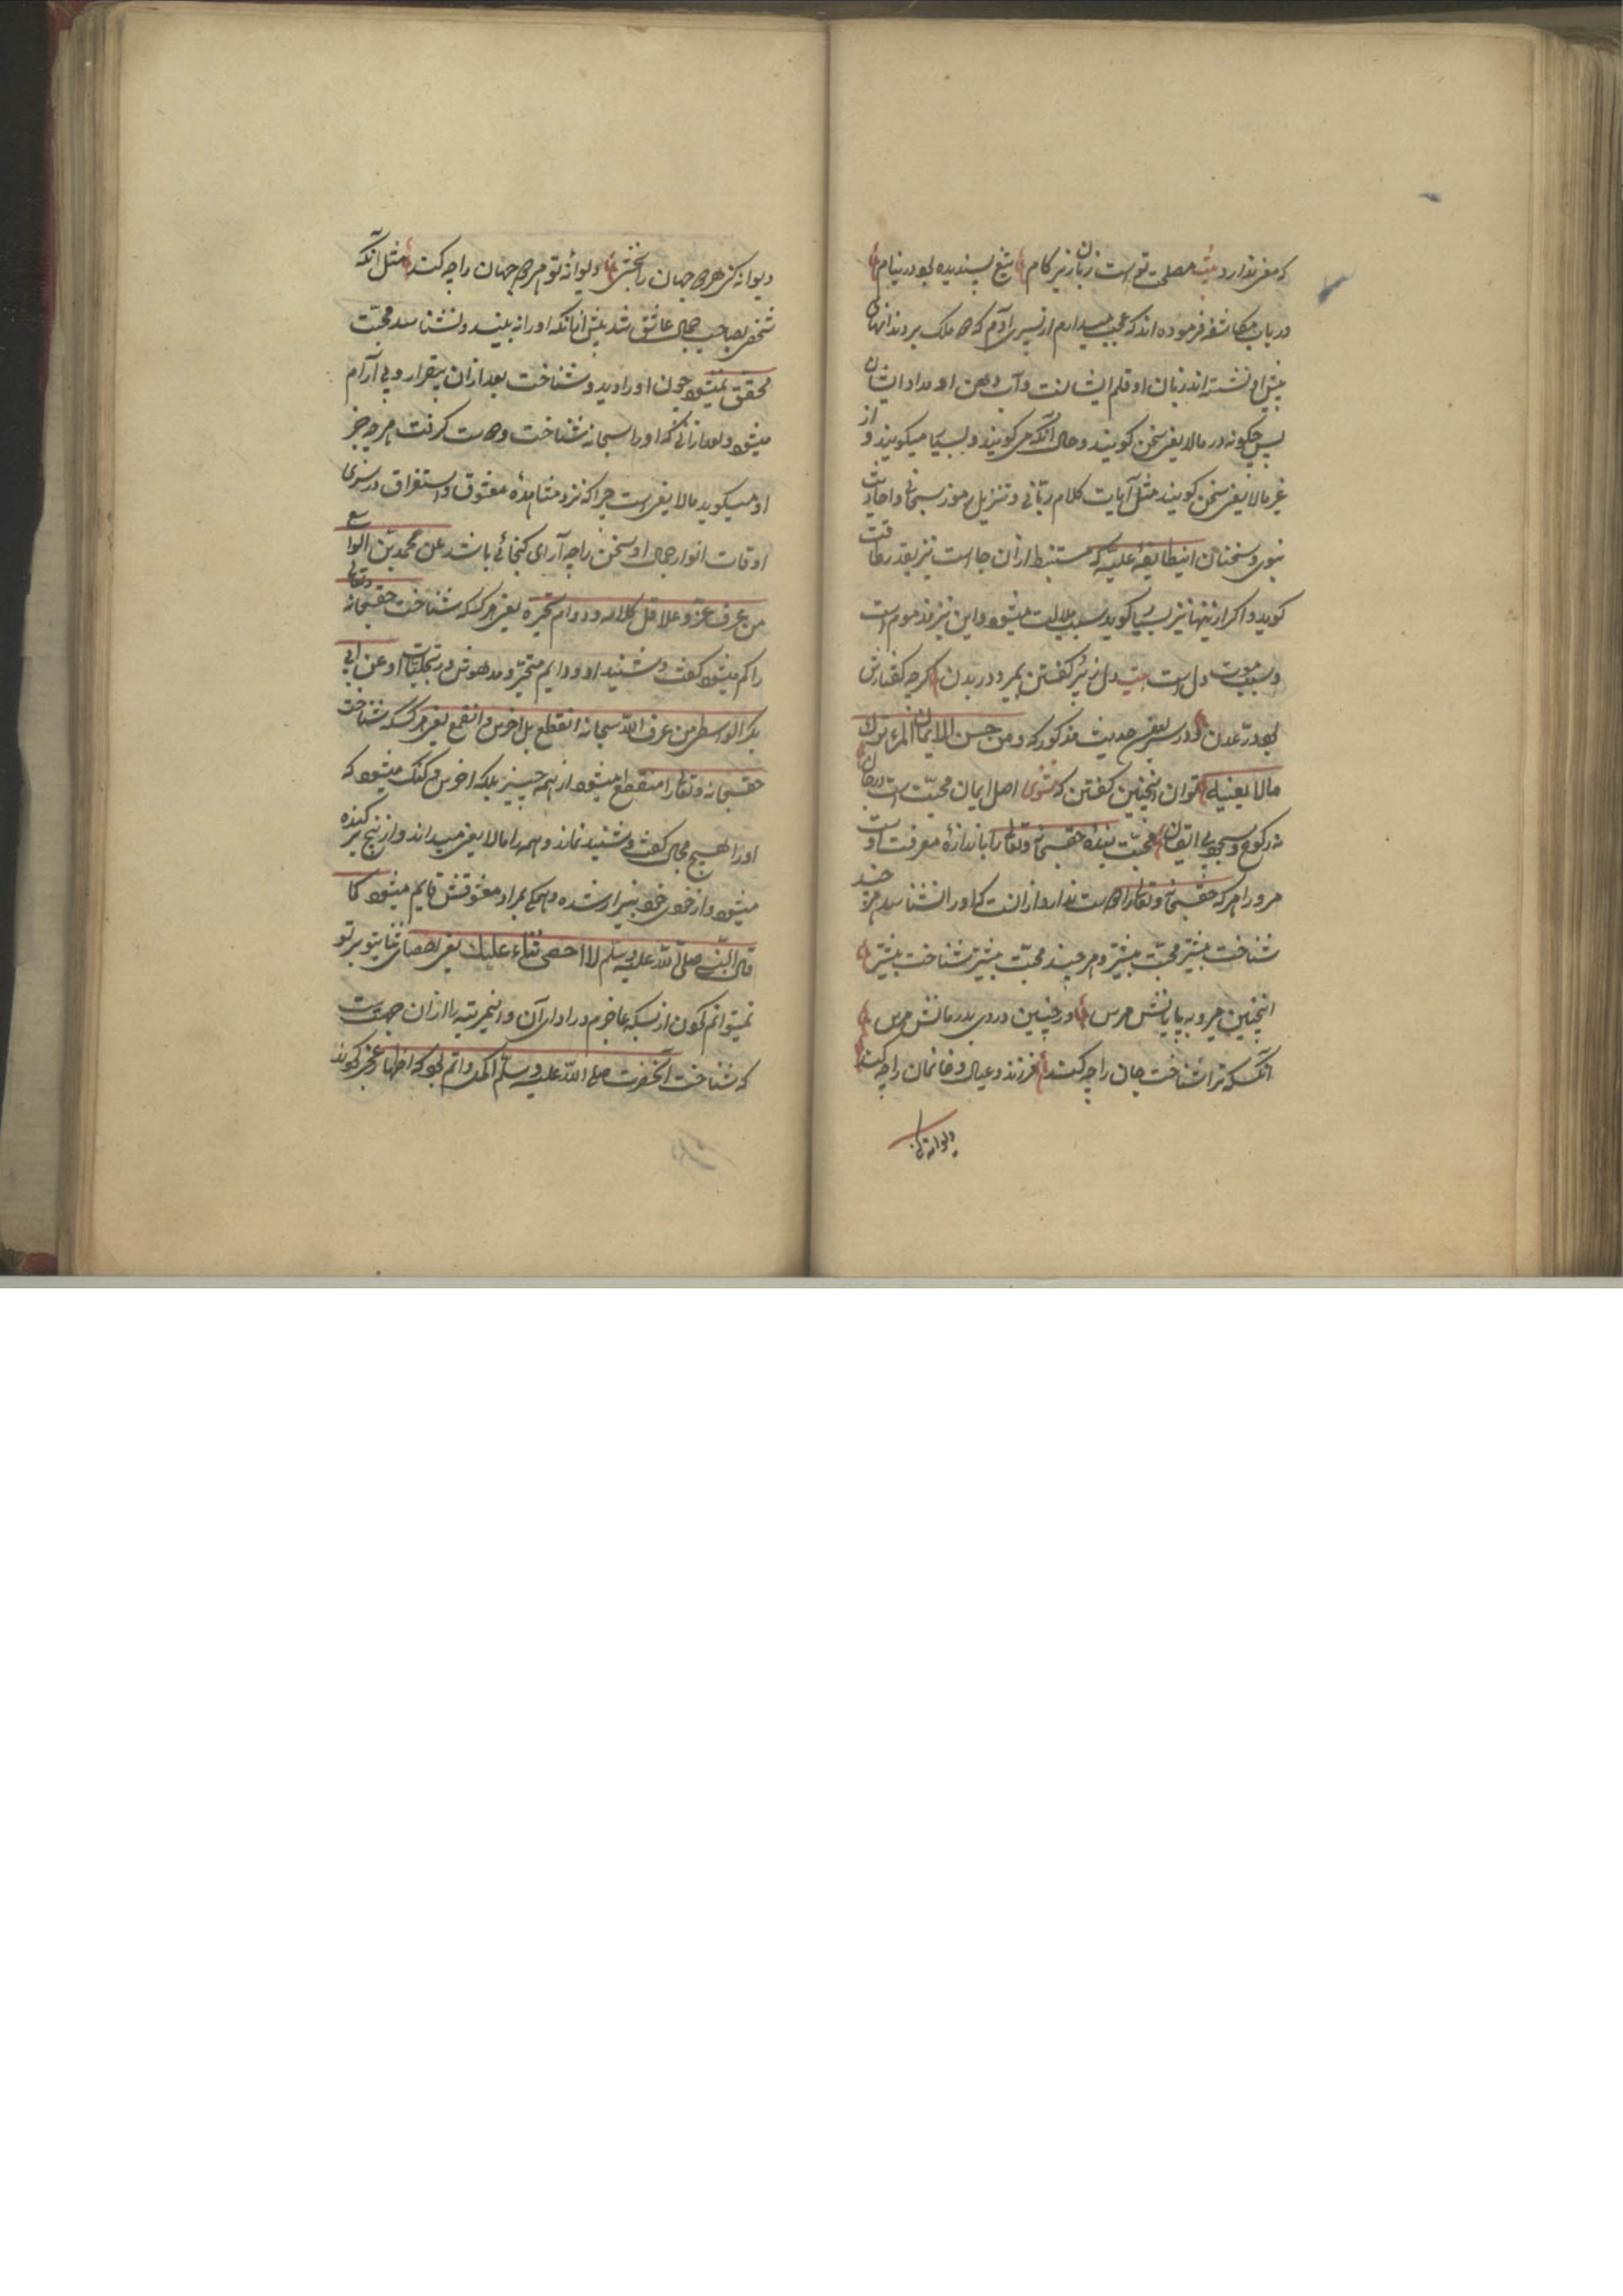 که مغز ندارد بیت مصلحت تو است زبان زیر کام تیغ پسندیده بود در نیام
در باب مکاشفه فرموده اند که عجب میدارم از پسر آدم که دو ملک بر دندانهای
پیش او نشسته اند زبان او قلم ایشانست و آب دهن او مداد ایشان
پس چگونه در مالا یعنی سخن گویند و حال آنکه می گویند و بسیار میگویند و از
غیر مالا یعنی سخن گویند مثل آیات کلام ربانی و تنزیل رموز سبحانی و احادیث
نبوی و سخنان اینطایفهٔ علیه که مستنبط ازان جا است نیز بقدر طاقت
گوید و اگر ازینها نیز بسیار گوید سبب ملالت میشود و این نیز مذموم است
و سبب موت دل است بیت دل ز پر گفتن بمیرد در بدن گرچه گفتارش
بود در عدن و در سر بعضی حدیث مذکور که و من حسن الایمان المرء ترک
مالا یعنیه توان اینچنین گفتن که مثنوی اصل ایمان محبت است در جان
نه رکوع و سجود بی ایقان محبت بنده حق سبحانه و تعالی را باندازهٔ معرفت اوست
مرو را هرکه حق سبحانه و تعالی را دوست ندارد ازانست که او را نشناسد هرچند
شناخت بیشتر محبت بیشتر و هرچند محبت بیشتر شناخت بیشتر
اینچنین میرو به پایانش مرس در چنین دردی بدرمانش مرس
آنکس که ترا شناخت جان را چه کند فرزند و عیال و خانمان را چه کند
دیوانه کنی
دیوانه کنی هر دو جهان را بخشی دیوانهٔ تو هر دو جهان را چه کند مثل آنکه
شخصی بصاحب جمالی عاشق شد پیش ازانکه او را نه بیند و نشناسد محبت
محقق نمیشود چون او را دید و شناخت بعد ازان بیقرار و بی آرام
میشود و بعد ازانی که او را سبحانه شناخت و دوست گرفت هرچه جز
او میگوید مالا یعنی است چرا که نزد مشاهدهٔ معشوق و استغراق در سر
اوقات انوار جمال او سخن را چه آرای گنجائی باشد عن محمد بن الواسع
من عرف عز و علا قل کلامه و دوام تحیره یعنی هرکه که شناخت حق سبحانه و تعالی
را کم میشود گفت و شنید او و دایم متحیر و مدهوش در تجلیات او عن ابی
بکر الواسطی من عرف الله سبحانه انقطع بل اخرس و انقمع یعنی هر کسکه شناخت
حق سبحانه و تعالی را منقطع میشود از همه چیز بلکه اخرس و گنگ میشود که
او را هیچ مجال گفت و شنید نماند و همه را مالا یعنی میداند و از بیخ برکنده
میشود و از خودی خود بیزار شده و بمراد معشوقش قایم میشود کما
قال النبی صلی الله علیه وسلم لا احصی ثناء علیک یعنی احصای ثنا بتو بر تو
نمیتوانم کردن از بسکه عاجزم در ادای آن و اینمرتبه را ازان جهت است
که شناخت آنحضرت صلی الله علیه وسلم اکمل و اتم بود که اظهار عجز کردند